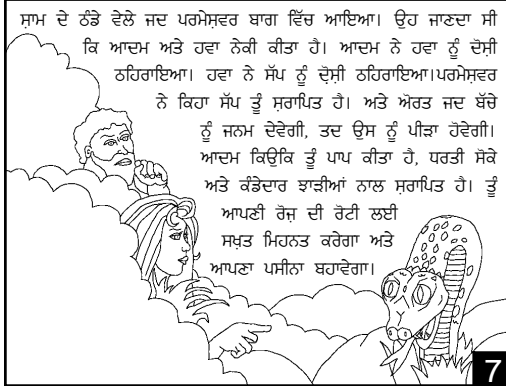 ਸ਼ਾਮ ਦੇ ਠੰਡੇ ਵੇਲੇ ਜਦ ਪਰਮੇਸ਼ਵਰ ਬਾਗ ਵਿੱਚ ਆਇਆ। ਉਹ ਜਾਣਦਾ ਸੀ
ਕਿ ਆਦਮ ਅਤੇ ਹਵਾ ਨੇਕੀ ਕੀਤਾ ਹੈ। ਆਦਮ ਨੇ ਹਵਾ ਨੂੰ ਦੋਸ਼ੀ
ਠਹਿਰਾਇਆ। ਹਵਾ ਨੇ ਸੱਪ ਨੂੰ ਦੋਸ਼ੀ ਠਹਿਰਾਇਆ।ਪਰਮੇਸ਼ਵਰ
ਨੇ ਕਿਹਾ ਸੱਪ ਤੂੰ ਸ਼ਰਾਪਿਤ ਹੈ। ਅਤੇ ਔਰਤ ਜਦ ਬੱਚੇ
ਨੂੰ ਜਨਮ ਦੇਵੇਗੀ, ਤਦ ਉਸ ਨੂੰ ਪੀੜਾ ਹੋਵੇਗੀ।
ਆਦਮ ਕਿਉਕਿ ਤੂੰ ਪਾਪ ਕੀਤਾ ਹੈ, ਧਰਤੀ ਸੋਕੇ
ਅਤੇ ਕੰਡੇਦਾਰ ਝਾੜੀਆਂ ਨਾਲ ਸ਼ਰਾਪਿਤ ਹੈ। ਤੂੰ
ਆਪਣੀ ਰੋਜ਼ ਦੀ ਰੋਟੀ ਲਈ
ਸਖ਼ਤ ਮਿਹਨਤ ਕਰੇਗਾ ਅਤੇ
ਆਪਣਾ ਪਸੀਨਾ ਬਹਾਵੇਗਾ।
7